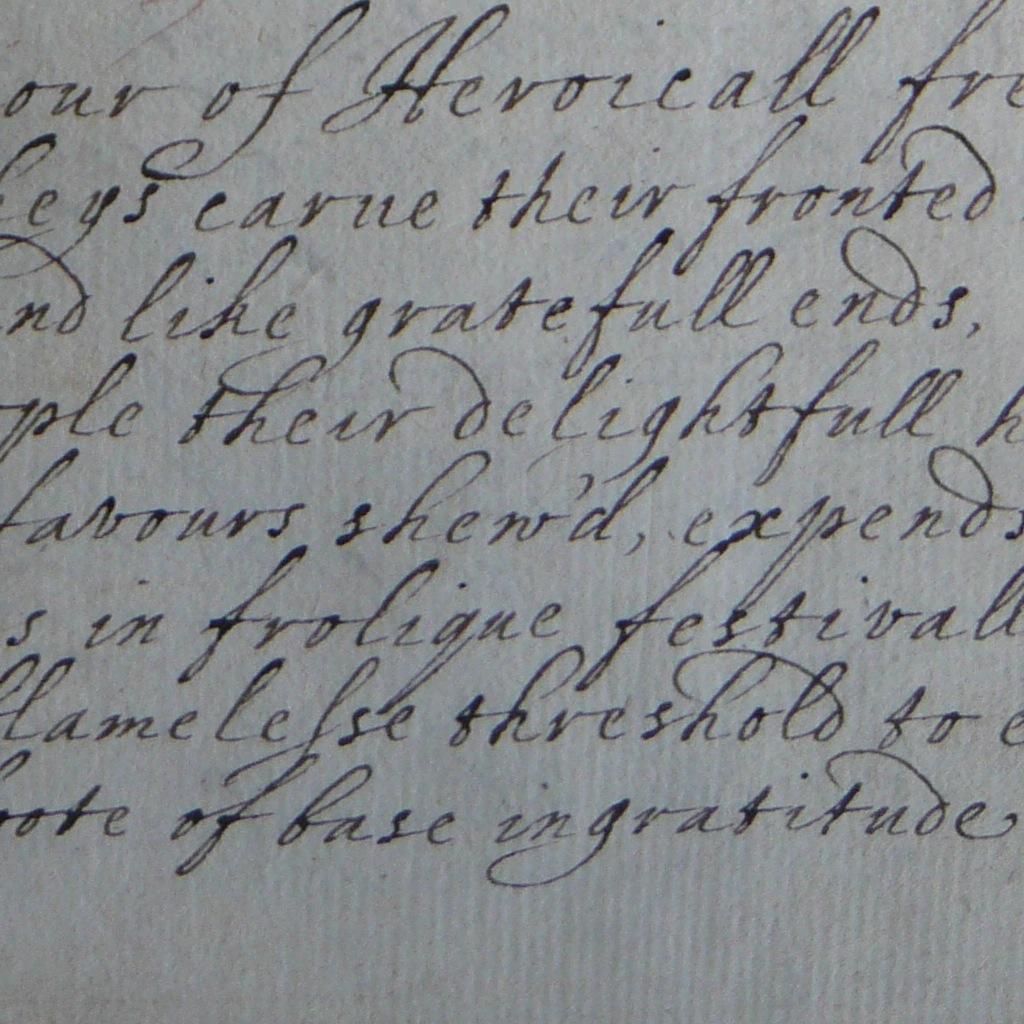 our of Heroicall fre
keys carue their fronted
nd like gratefull ends,
ple their delightfull h
favours shew'd, expends
s in frolique festivall
lamelesse threshold to e
oote of base ingratitude